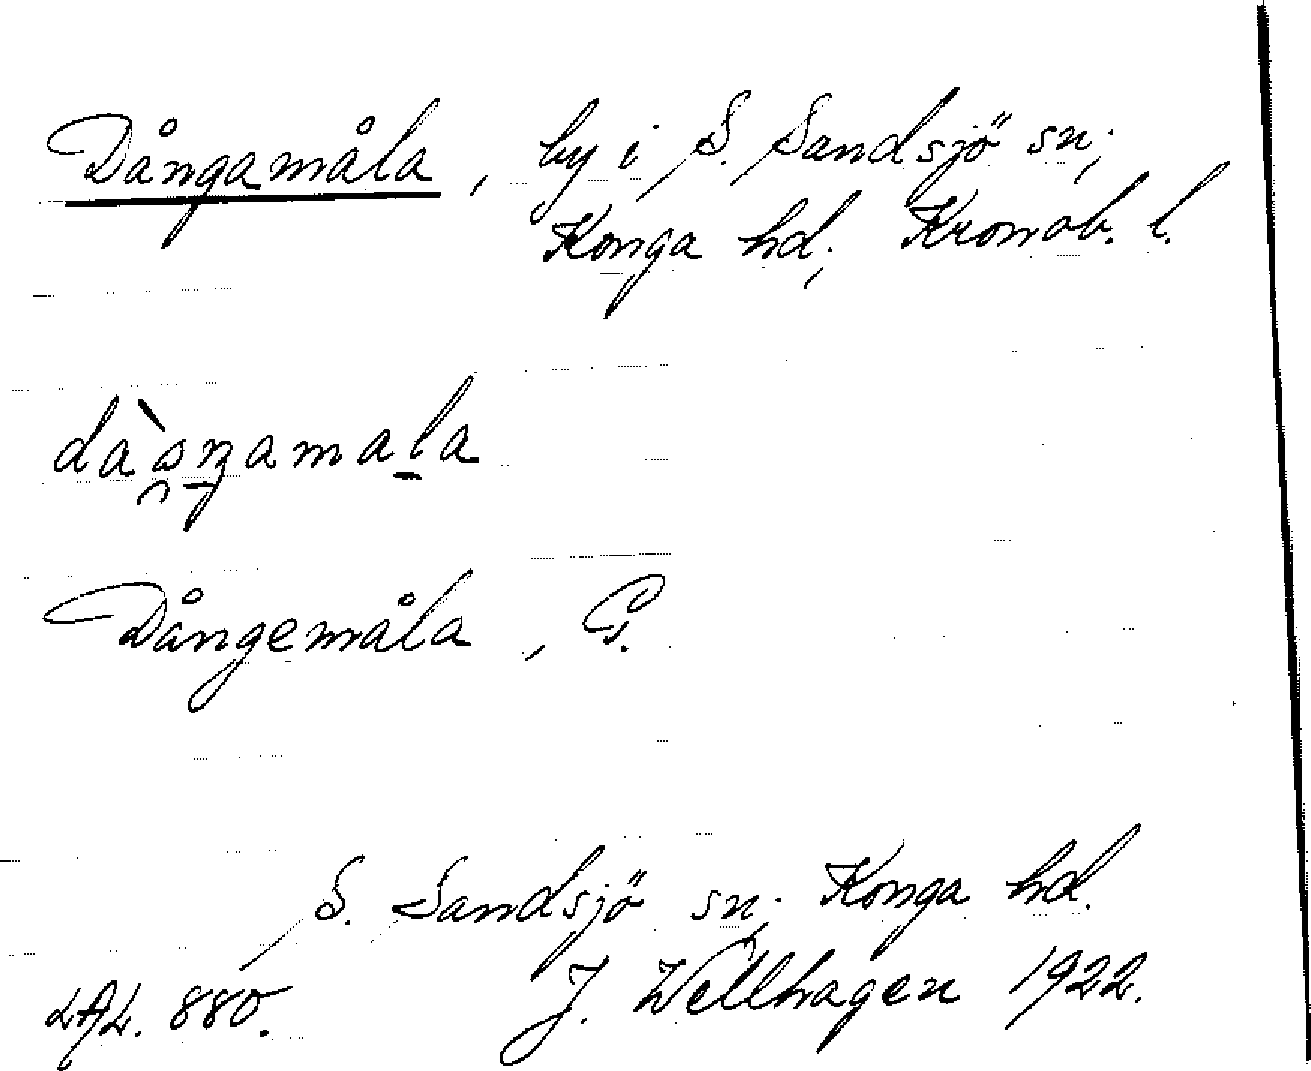 Dångamåla, by i S. Sandsjö sn,
Konga hd, Kronob. l.
Dångemåla, G.
S. Sandsjö sn. Konga hd.
LAL. 880. J. Wellhagen 1922.